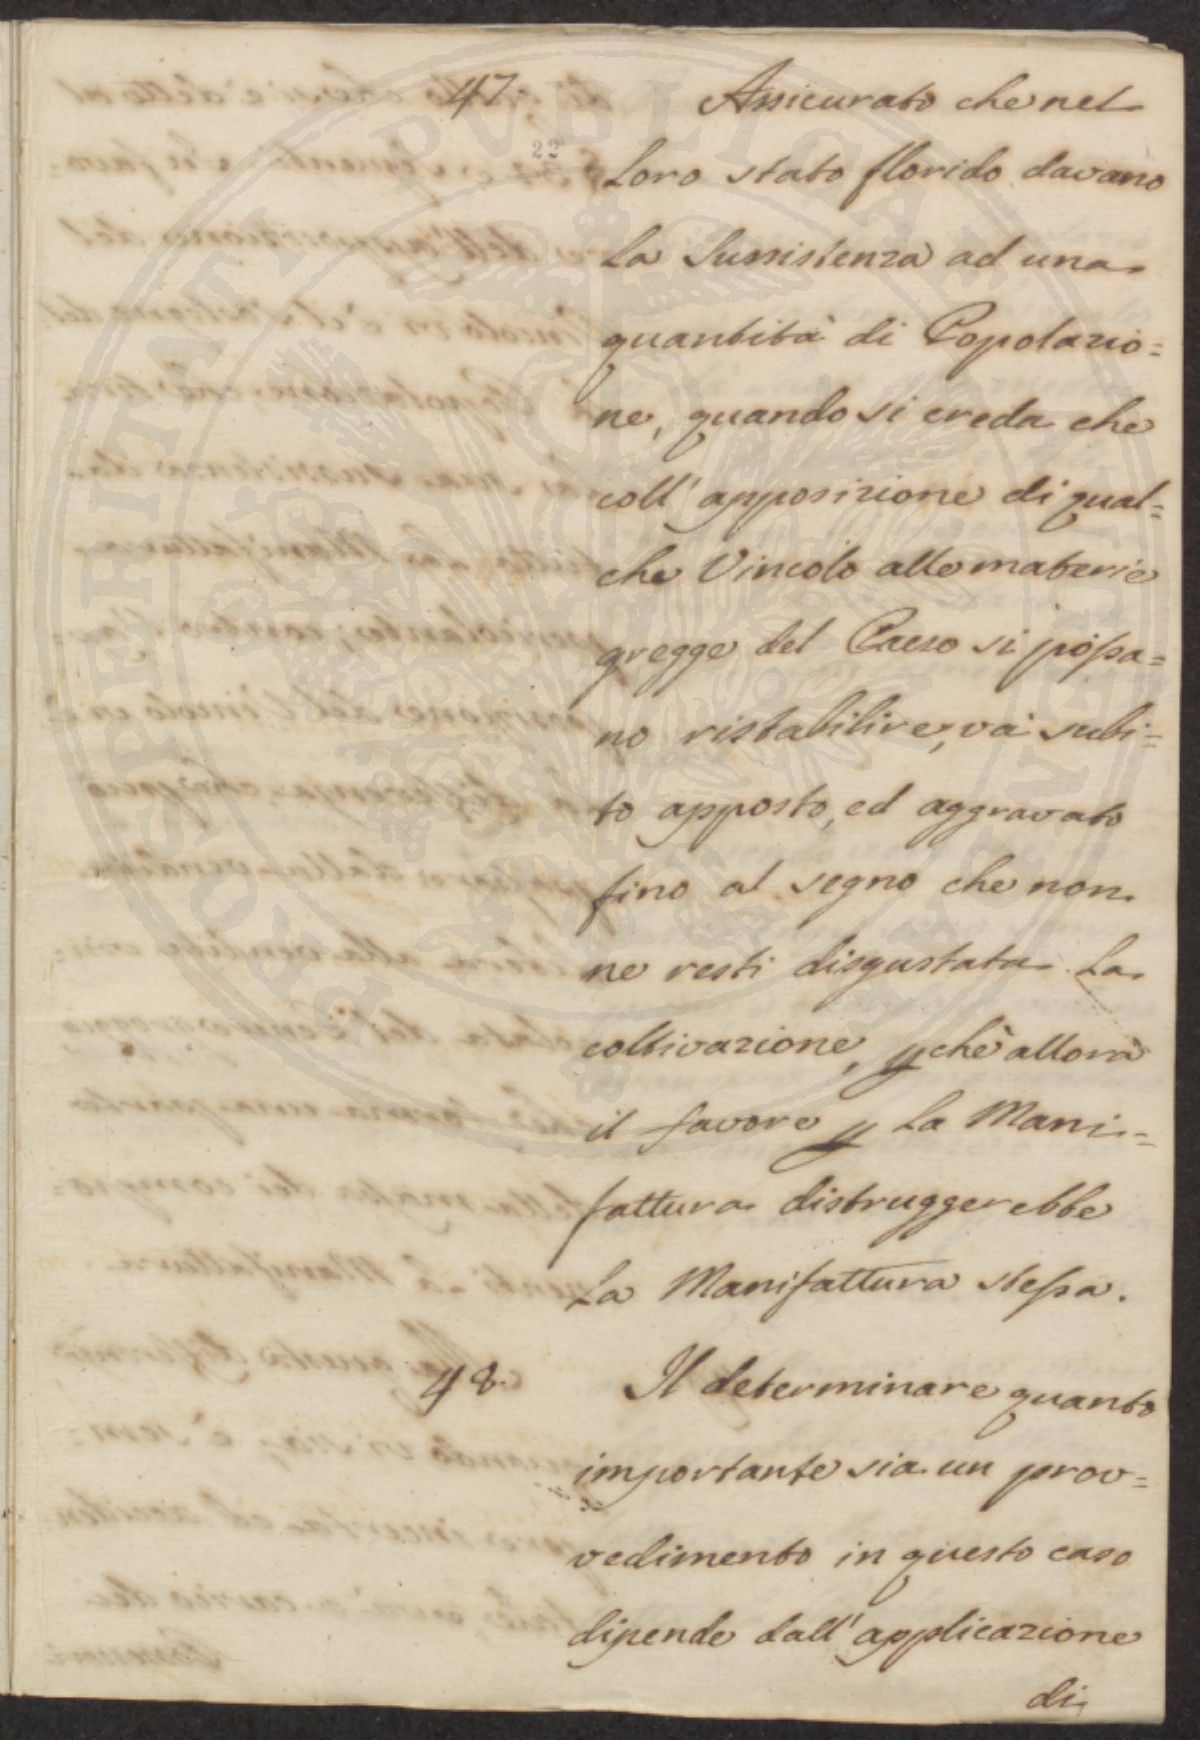 47. Assicurato che nel
22
Loro stato florido davano
La Sussistenza ad una
quantità di Popolazio=
ne, quando si creda che
coll' apposizione di qual=
che Vincolo alle materie
gregge del Paese si possa=
no ristabilire, và subi=
to apposto, ed aggravato
fino al segno che non
ne resti disgustata La
coltivazione, pchè allora
il favore p La Mani=
fattura distruggerebbe
La Manifattura stessa.
48. Il determinare quanto
importante sia un prov=
vedimento in questo caso
dipende dall' applicazione
di
PROSPERITATI PVBLICAE AVGENDAE